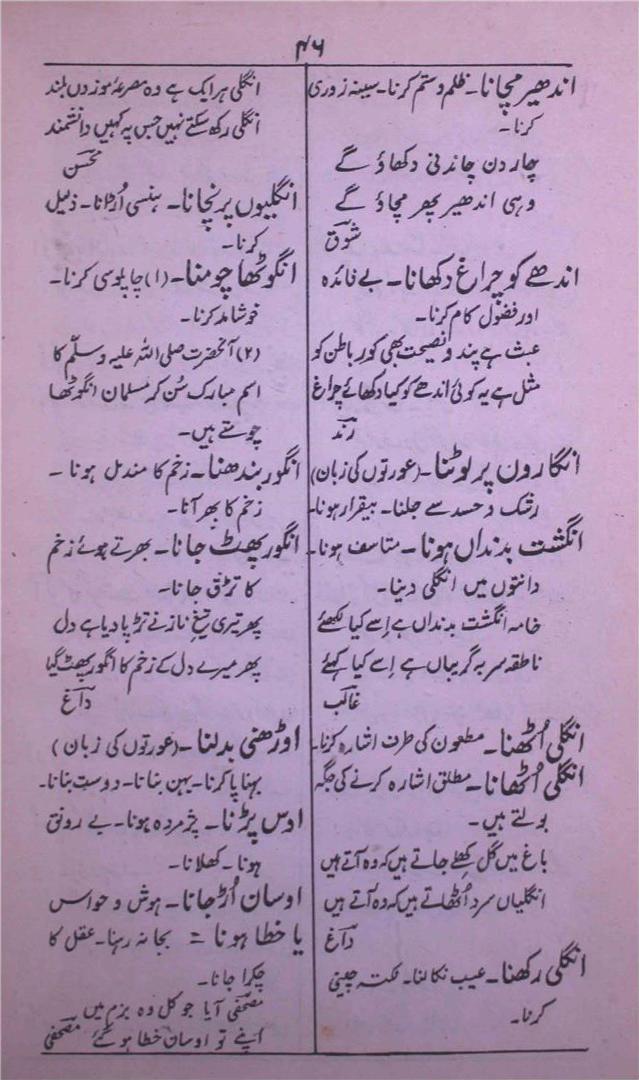 ۴۶
اندھیر مچانا۔ ظلم و ستم کرنا۔ سینہ زوری
کرنا۔
چار دن چاندنی دکھاؤ گے
وہی اندھیر پھر مچاؤ گے
شوق
اندھے کو چراغ دکھانا۔ بے فائدہ
اور فضول کام کرنا۔
عبث ہے پند و نصیحت بھی کور باطن کو
مثل ہے یہ کوئی اندھے کو کیا دکھائے چراغ
رند
انگاروں پر لوٹنا۔ (عورتوں کی زبان)
رشک و حسد سے جلنا۔ بیقرار ہونا۔
انگشت بدنداں ہونا۔ متاسف ہونا۔
دانتوں میں انگلی دینا۔
خامہ انگشت بدنداں ہے اسے کیا لکھئے
ناطقہ سر بہ گریباں ہے اسے کیا کہئے
غالب
انگلی اُٹھنا۔ مطعون کی طرف اشارہ کرنا۔
انگلی اُٹھانا۔ مطلق اشارہ کرنے کی جگہ
بولتے ہیں۔
باغ میں گل کھلے جاتے ہیں کہ وہ آتے ہیں
انگلیاں سرو اُٹھاتے ہیں کہ وہ آتے ہیں
داغ
انگلی رکھنا۔ عیب نکالنا۔ نکتہ چینی
کرنا۔
انگلی ہر ایک ہے وہ مصرعۂ موزوں بلند
انگلی رکھ سکتے نہیں جس پہ کہیں دانشمند
محسن
انگلیوں پر نچانا۔ ہنسی اُڑانا۔ ذلیل
کرنا۔
انگوٹھا چومنا۔ (۱) چاپلوسی کرنا۔
خوشامد کرنا۔
(۲) آنحضرت صلی اللہ علیہ وسلم کا
اسم مبارک سُن کر مسلمان انگوٹھا
چومتے ہیں۔
انگور بندھنا۔ زخم کا مندمل ہونا۔
زخم کا بھر آنا۔
انگور پھٹ جانا۔ بھرتے ہوئے زخم
کا تڑق جانا۔
پھر تیری تیغ ناز نے تڑپا دیا ہے دل
پھر میرے دل کے زخم کا انگور پھٹ گیا
داغ
اوڑھنی بدلنا۔ (عورتوں کی زبان)
بہناپا کرنا۔ بہن بنانا۔ دوست بنانا۔
اوس پڑنا۔ پژمردہ ہونا۔ بے رونق
ہونا۔ کھلانا۔
اوسان اُڑ جانا۔ ہوش و حواس
یا خطا ہونا = بجا نہ رہنا۔ عقل کا
چکرا جانا۔
مصحفی آیا جو کل وہ بزم میں
اپنے تو اوسان خطا ہو گئے مصحفی